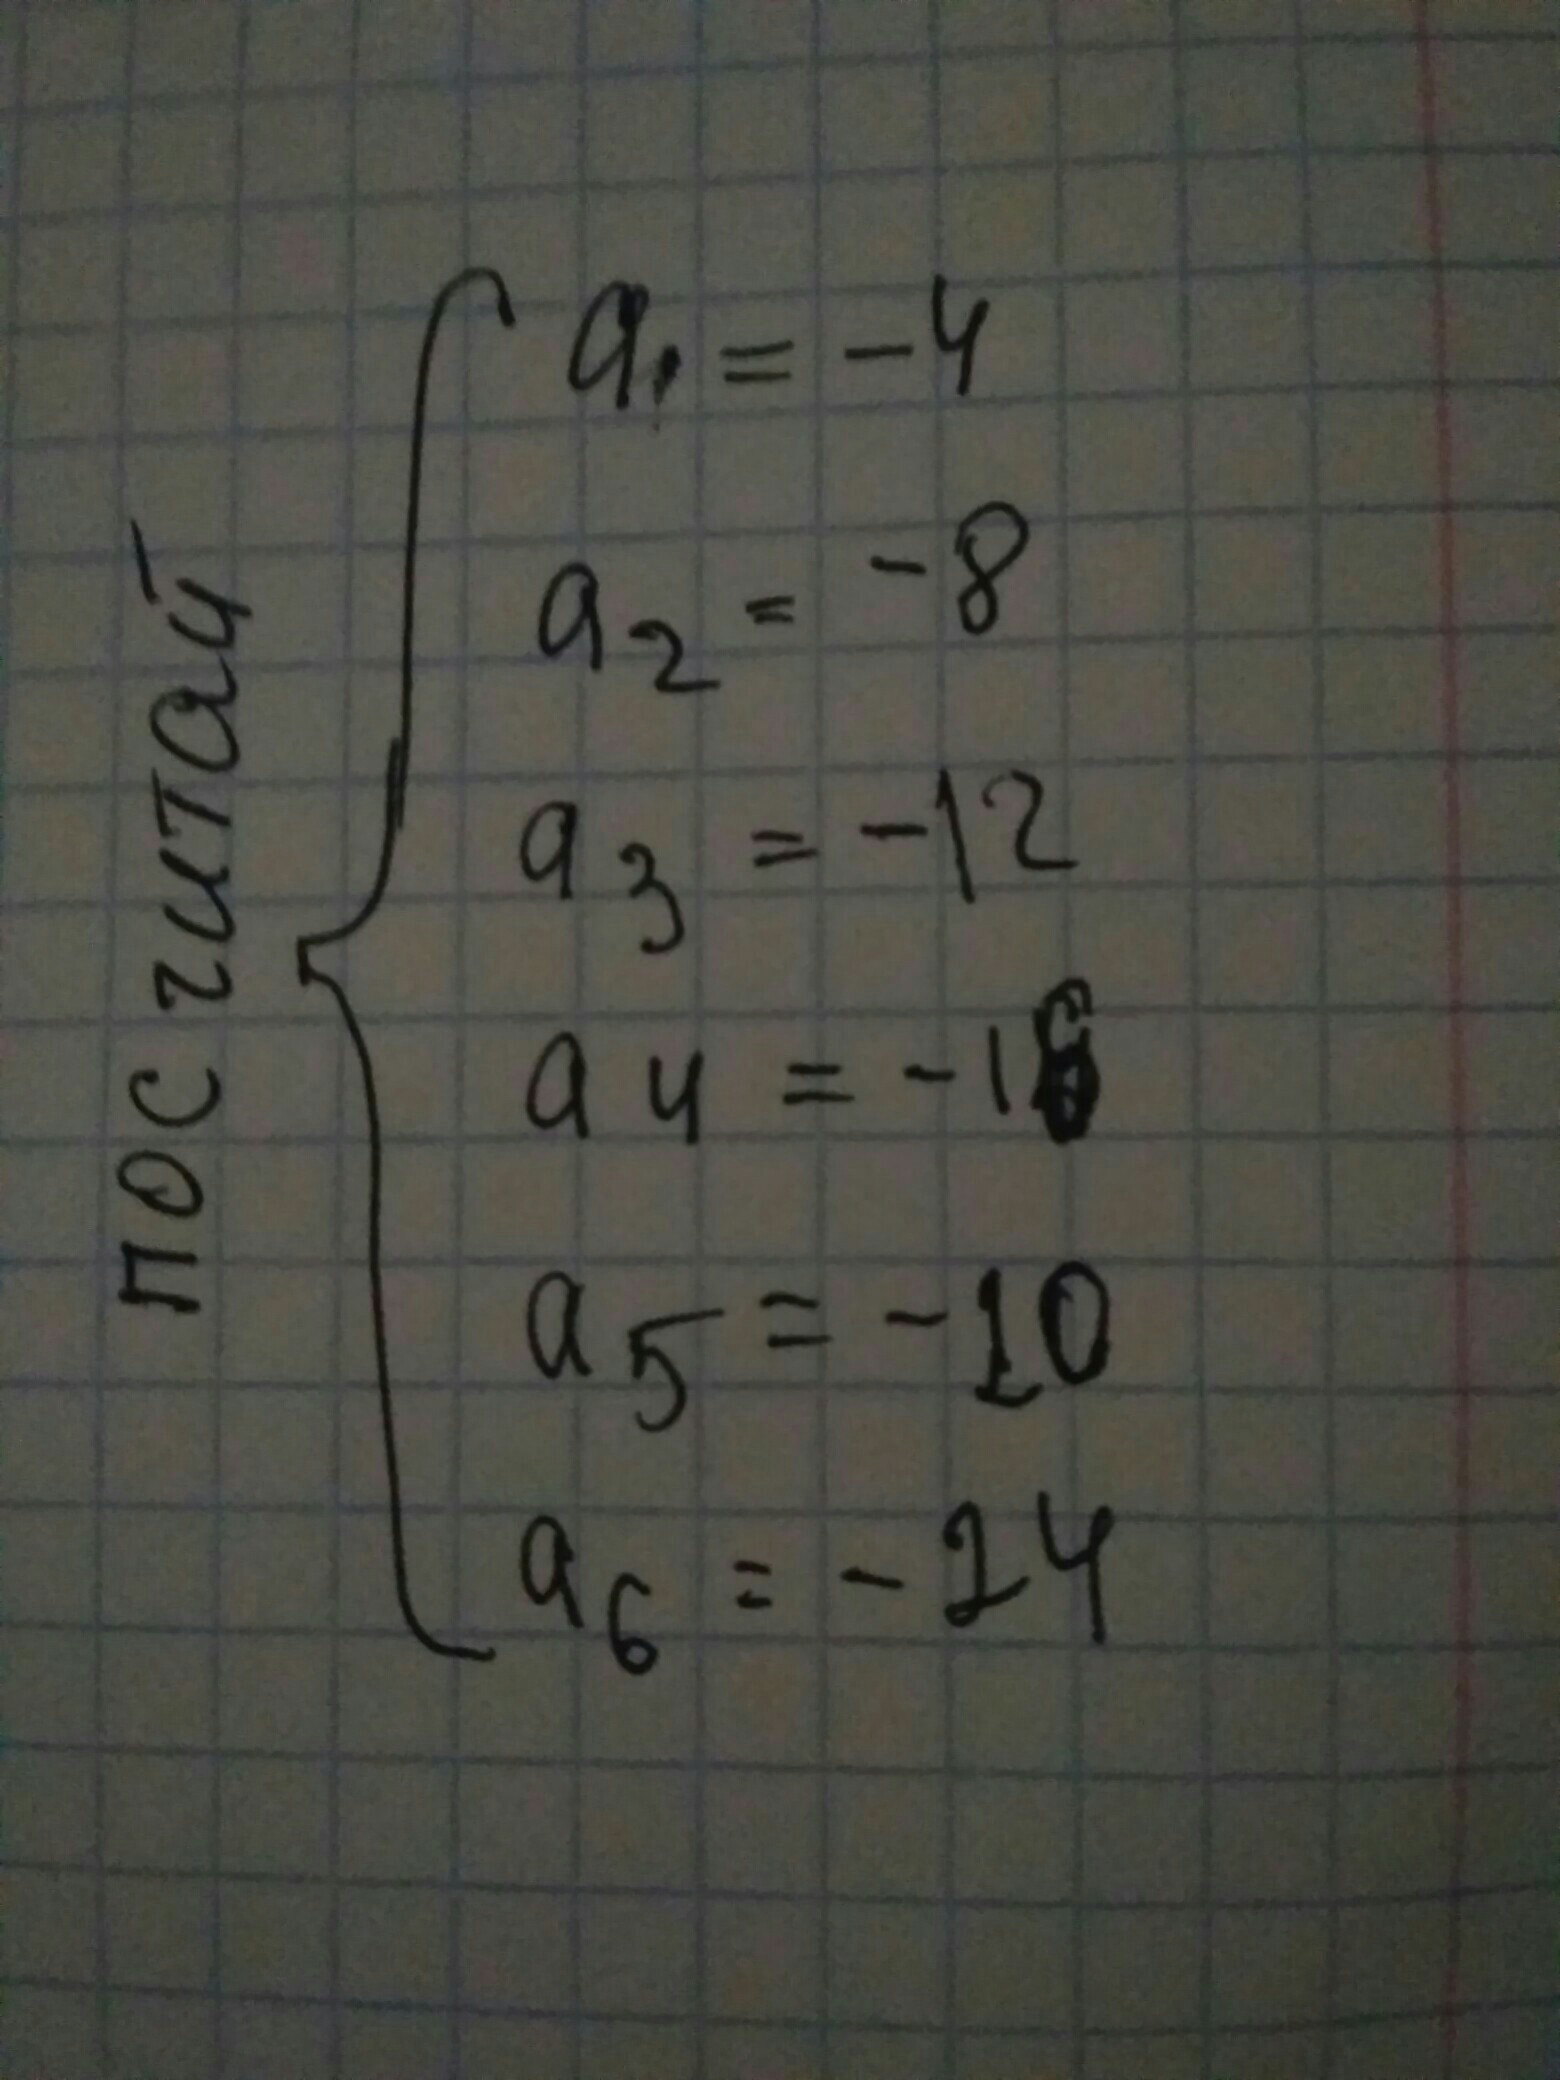 посчитай
a1 = -4
a2 = -8
a3 = -12
a4 = -16
a5 = -10
a6 = -24